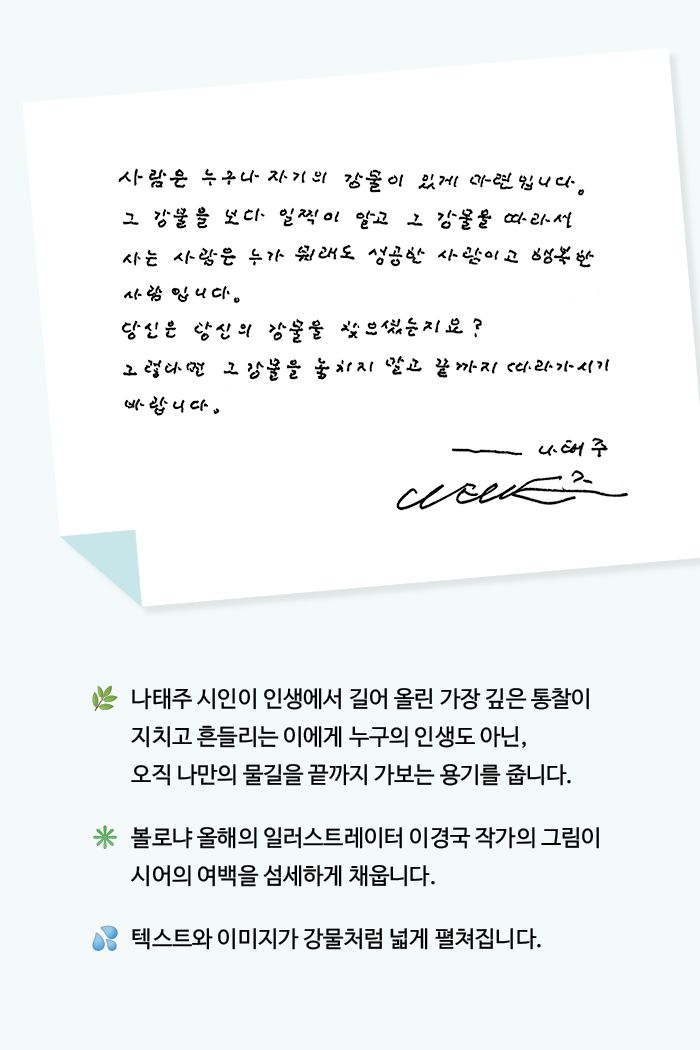 사람은 누구나 자기의 강물이 있게 마련입니다.
그 강물을 보다 일찍이 알고 그 강물을 따라서
사는 사람은 누가 뭐래도 성공한 사람이고 행복한
사람입니다.
당신은 당신의 강물을 찾으셨는지요?
그렇다면 그 강물을 놓치지 말고 끝까지 따라가시기
바랍니다.
— 나태주
나태주
나태주 시인이 인생에서 길어 올린 가장 깊은 통찰이
지치고 흔들리는 이에게 누구의 인생도 아닌,
오직 나만의 물길을 끝까지 가보는 용기를 줍니다.
볼로냐 올해의 일러스트레이터 이경국 작가의 그림이
시어의 여백을 섬세하게 채웁니다.
텍스트와 이미지가 강물처럼 넓게 펼쳐집니다.